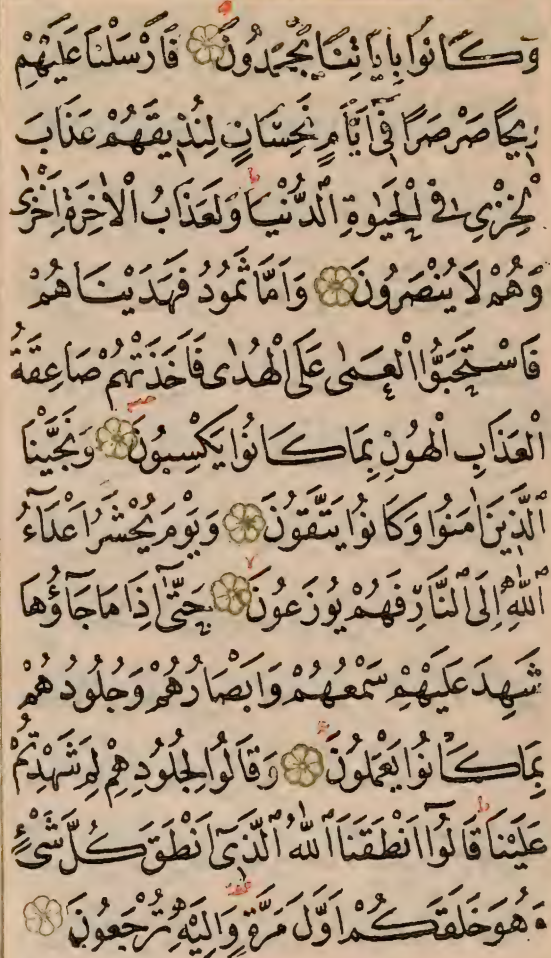 وَكَانُوا بِاٰيَاتِنَا يَجْحَدُونَ فَاَرْسَلْنَا عَلَيْهِمْ
رِيحًا صَرْصَرًا فِٓى اَيَّامٍ نَحِسَاتٍ لِنُذِيقَهُمْ عَذَابَ
الْخِزْىِ فِى الْحَيٰوةِ الدُّنْيَا وَلَعَذَابُ الْاٰخِرَةِ اَخْزٰى
وَهُمْ لَا يُنْصَرُونَ وَاَمَّا ثَمُودُ فَهَدَيْنَاهُمْ
فَاسْتَحَبُّوا الْعَمٰى عَلَى الْهُدٰى فَاَخَذَتْهُمْ صَاعِقَةُ
الْعَذَابِ الْهُونِ بِمَا كَانُوا يَكْسِبُونَ وَنَجَّيْنَا
الَّذِينَ اٰمَنُوا وَكَانُوا يَتَّقُونَ وَيَوْمَ يُحْشَرُ اَعْدَٓاءُ
اللّٰهِ اِلَى النَّارِ فَهُمْ يُوزَعُونَ حَتّٰٓى اِذَا مَا جَٓاؤُهَا
شَهِدَ عَلَيْهِمْ سَمْعُهُمْ وَاَبْصَارُهُمْ وَجُلُودُهُمْ
بِمَا كَانُوا يَعْمَلُونَ وَقَالُوا لِجُلُودِهِمْ لِمَ شَهِدْتُمْ
عَلَيْنَا قَالُٓوا اَنْطَقَنَا اللّٰهُ الَّذِٓى اَنْطَقَ كُلَّ شَىْءٍ
وَهُوَ خَلَقَكُمْ اَوَّلَ مَرَّةٍ وَاِلَيْهِ تُرْجَعُونَ